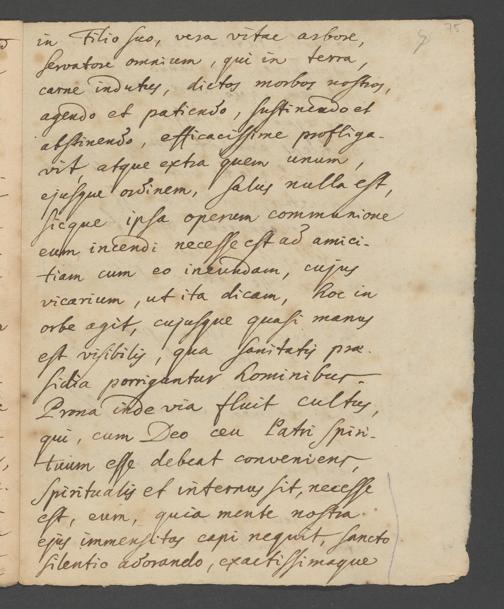 75
in Filio suo, vera vitae arbore,
servatore omnium, qui in terra,
carne indutus, dictos morbos nostros,
agendo et patiendo, sustinendo et
abstinendo, efficacissime profliga-
vit, atque extra quem unum,
ejusque ordinem, salus nulla est,
sicque ipsa operum communione
eum incendi necesse est ad amici-
tiam cum eo ineundam, cujus
vicarium, ut ita dicam, hoc in
orbe agit, cujusque quasi manus
est visibilis, qua sanitatis prae-
sidia porriguntur hominibus.
Prona inde via fluit cultus,
qui, cum Deo ceu Patri spiri-
tuum esse debeat conveniens,
spiritualis et internus sit, necesse
est, eum, quia mente nostra
ejus immensitas capi nequit, sancto
silentio adorando, exactissimaque